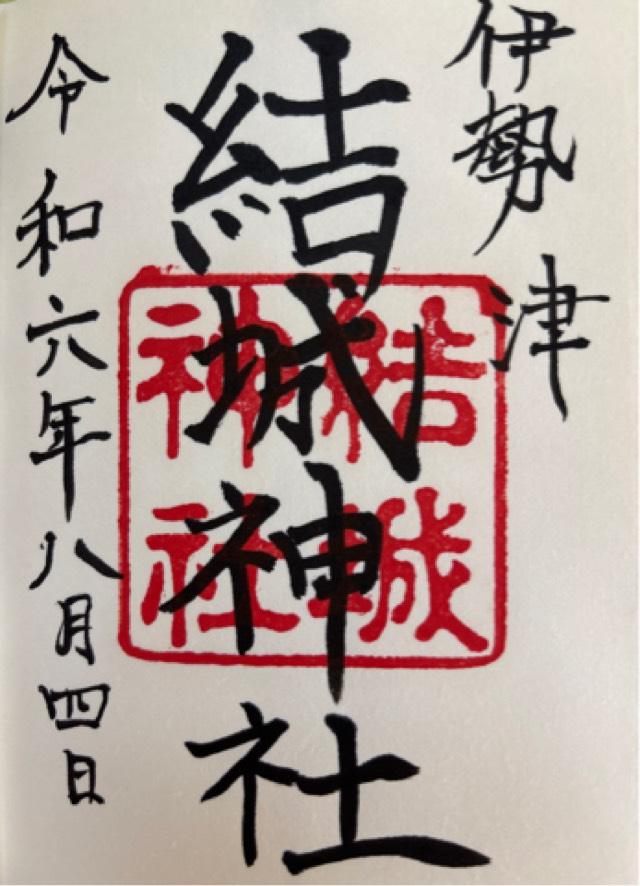 伊勢津
結城神社
結城
神社
令和六年八月四日